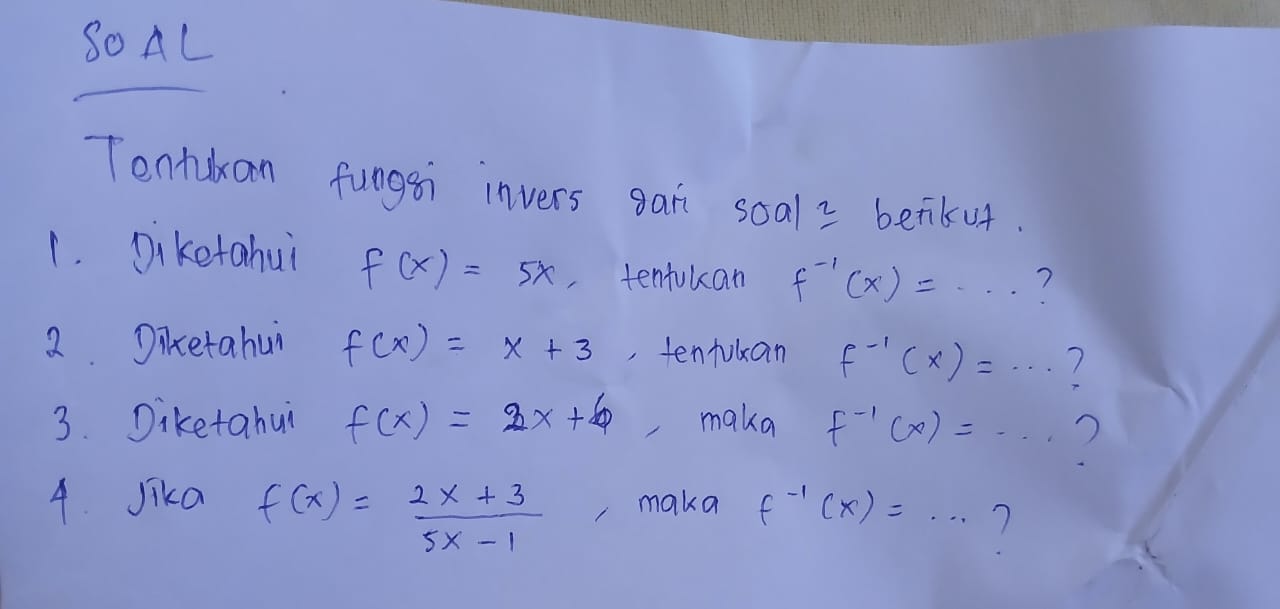 SOAL
Tentukan fungsi invers dari soal2 berikut.
1. Diketahui f(x) = 5x, tentukan f⁻¹(x) = ....?
2. Diketahui f(x) = x + 3, tentukan f⁻¹(x) = ...?
3. Diketahui f(x) = 2x + 6, maka f⁻¹(x) = ....?
4. Jika f(x) = (2x + 3)/(5x - 1), maka f⁻¹(x) = ...?